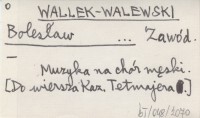 WALLEK-WALEWSKI
Bolesław ... Zawód.
—
Muzyka na chór męski.
[Do wiersza Kaz. Tetmajera.]